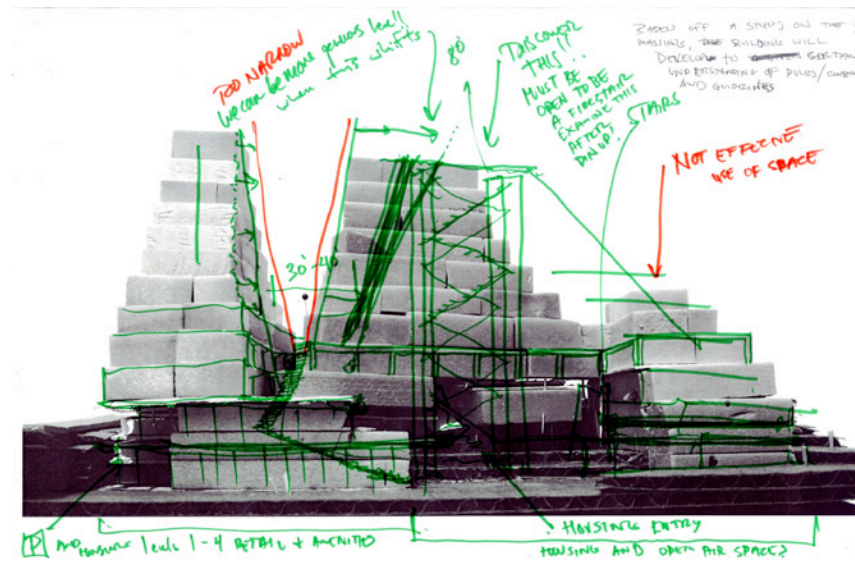 TOO NARROW
We can be more generous level!!
when this shifts
80'
DISCOVER
THIS!!
MUST BE
OPEN TO BE
A FIRESTAIR
EXAMINE THIS
AFTER
PIN UP!
BASED OFF A STUDY ON THE
MASSINGS, THE BUILDING WILL
DEVELOP TO
UNDERSTANDING OF RULES/
AND GUIDELINES
STAIRS
NOT EFFECTIVE
USE OF SPACE
30'-40'
P AND HOUSING levels 1-4 RETAIL +
HOUSING ENTRY
HOUSING AND OPEN AIR SPACE?